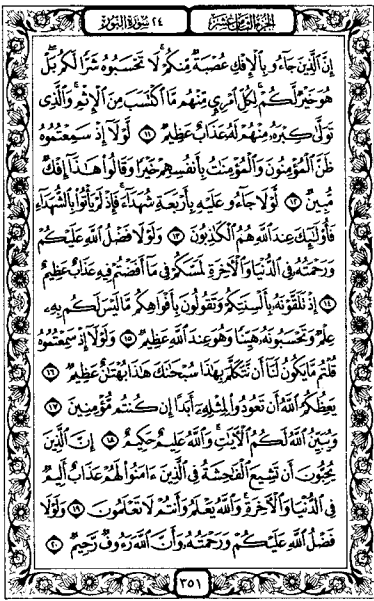 الجزء الثامن عشر
٢٤ سورة النور
إِنَّ ٱلَّذِينَ جَآءُو بِٱلْإِفْكِ عُصْبَةٌ مِّنكُمْ ۚ لَا تَحْسَبُوهُ شَرًّا لَّكُم ۖ بَلْ
هُوَ خَيْرٌ لَّكُمْ ۚ لِكُلِّ ٱمْرِئٍ مِّنْهُم مَّا ٱكْتَسَبَ مِنَ ٱلْإِثْمِ ۚ وَٱلَّذِى
تَوَلَّىٰ كِبْرَهُۥ مِنْهُمْ لَهُۥ عَذَابٌ عَظِيمٌ ١١ لَّوْلَآ إِذْ سَمِعْتُمُوهُ
ظَنَّ ٱلْمُؤْمِنُونَ وَٱلْمُؤْمِنَٰتُ بِأَنفُسِهِمْ خَيْرًا وَقَالُوا۟ هَٰذَآ إِفْكٌ
مُّبِينٌ ١٢ لَّوْلَا جَآءُو عَلَيْهِ بِأَرْبَعَةِ شُهَدَآءَ ۚ فَإِذْ لَمْ يَأْتُوا۟ بِٱلشُّهَدَآءِ
فَأُو۟لَٰٓئِكَ عِندَ ٱللَّهِ هُمُ ٱلْكَٰذِبُونَ ١٣ وَلَوْلَا فَضْلُ ٱللَّهِ عَلَيْكُمْ
وَرَحْمَتُهُۥ فِى ٱلدُّنْيَا وَٱلْءَاخِرَةِ لَمَسَّكُمْ فِى مَآ أَفَضْتُمْ فِيهِ عَذَابٌ عَظِيمٌ
١٤ إِذْ تَلَقَّوْنَهُۥ بِأَلْسِنَتِكُمْ وَتَقُولُونَ بِأَفْوَاهِكُم مَّا لَيْسَ لَكُم بِهِۦ
عِلْمٌ وَتَحْسَبُونَهُۥ هَيِّنًا وَهُوَ عِندَ ٱللَّهِ عَظِيمٌ ١٥ وَلَوْلَآ إِذْ سَمِعْتُمُوهُ
قُلْتُم مَّا يَكُونُ لَنَآ أَن نَّتَكَلَّمَ بِهَٰذَا سُبْحَٰنَكَ هَٰذَا بُهْتَٰنٌ عَظِيمٌ ١٦
يَعِظُكُمُ ٱللَّهُ أَن تَعُودُوا۟ لِمِثْلِهِۦٓ أَبَدًا إِن كُنتُم مُّؤْمِنِينَ ١٧
وَيُبَيِّنُ ٱللَّهُ لَكُمُ ٱلْءَايَٰتِ ۚ وَٱللَّهُ عَلِيمٌ حَكِيمٌ ١٨ إِنَّ ٱلَّذِينَ
يُحِبُّونَ أَن تَشِيعَ ٱلْفَٰحِشَةُ فِى ٱلَّذِينَ ءَامَنُوا۟ لَهُمْ عَذَابٌ أَلِيمٌ
فِى ٱلدُّنْيَا وَٱلْءَاخِرَةِ ۚ وَٱللَّهُ يَعْلَمُ وَأَنتُمْ لَا تَعْلَمُونَ ١٩ وَلَوْلَا
فَضْلُ ٱللَّهِ عَلَيْكُمْ وَرَحْمَتُهُۥ وَأَنَّ ٱللَّهَ رَءُوفٌ رَّحِيمٌ ٢٠
٣٥١